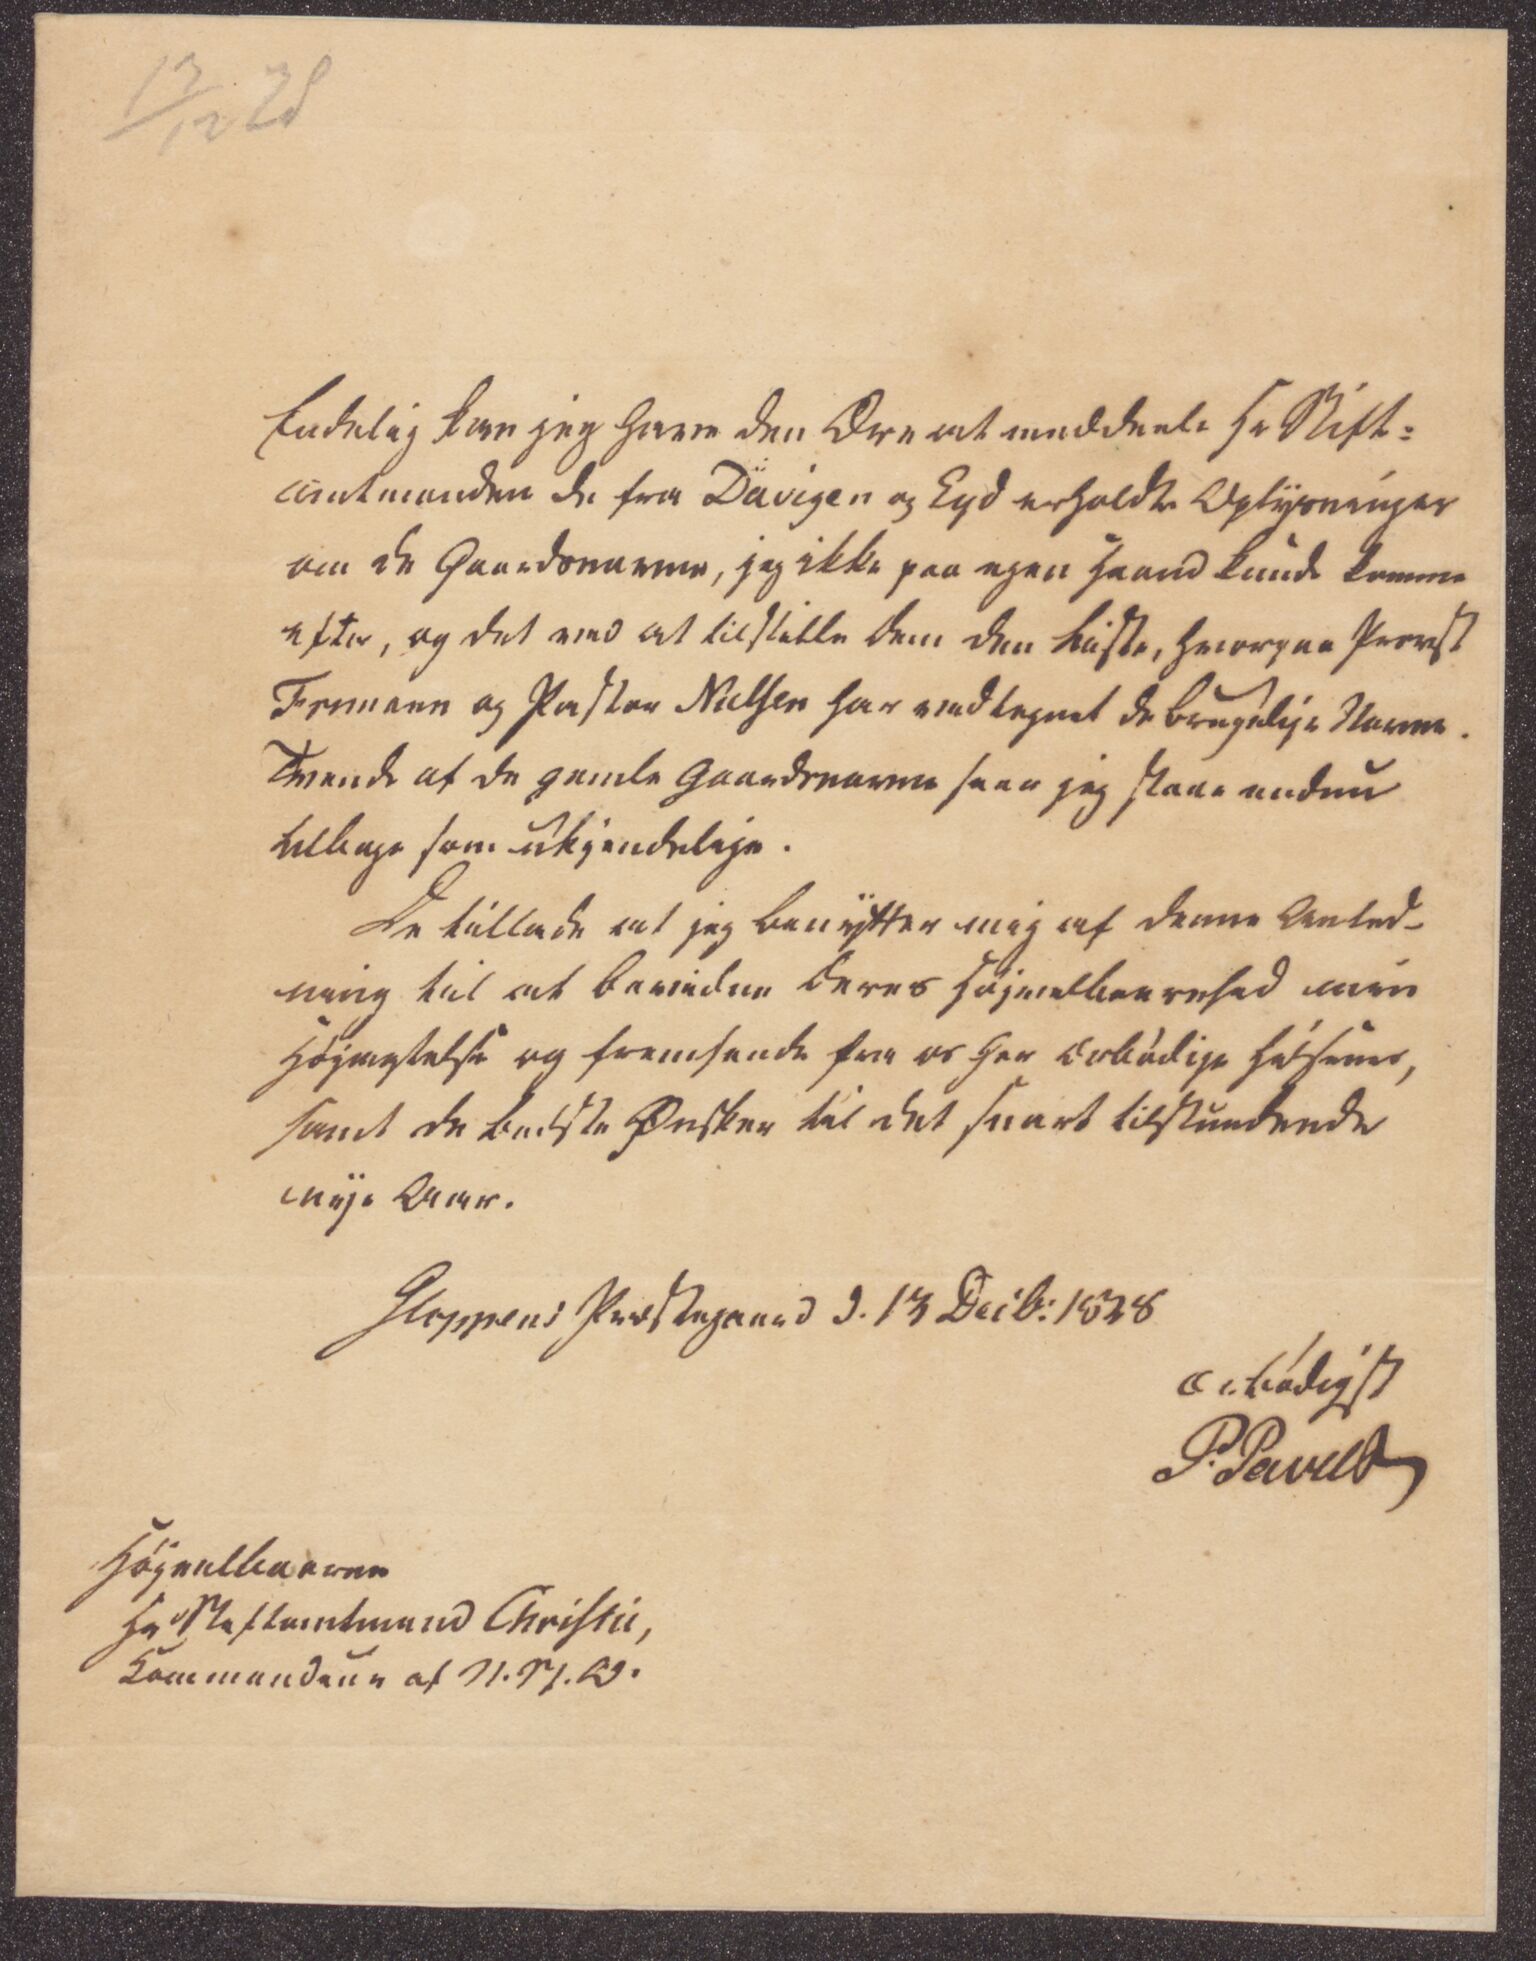 13/12 28
Endelig kan jeg have den Ære at meddeele Hr Stift=
amtmanden de fra Davigen og Eyd erholdte Oplysninger
om de Gaardsnavne, jeg ikke paa egen Haand kunde komme
efter, og det ved at tilstille Dem den Liste, hvorpaa Provst
Frimann og Pastor Nielsen har vedtegnet de brugelige Navne.
Tvende af de gamle Gaardsnavne seer jeg staae endnu
tilbage som ukjendelige.
De tillade at jeg benytter mig af denne Anled-
ning til at bevidne Deres Højvelbaarenhed min
Højagtelse og fremsende fra os her ærbödige Hilsener,
samt de bedste Ønsker til det snart tilstundende
nye Aar.
Gloppens Præstegaard d. 13 Decb: 1828
ærbödigst
P. Pavels
Højvelbaarne
Hr Stiftamtmand Christie,
Kommandeur af N. O.